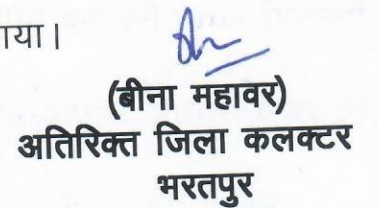 ाया।
(बीना महावर)
अतिरिक्त जिला कलक्टर
भरतपुर